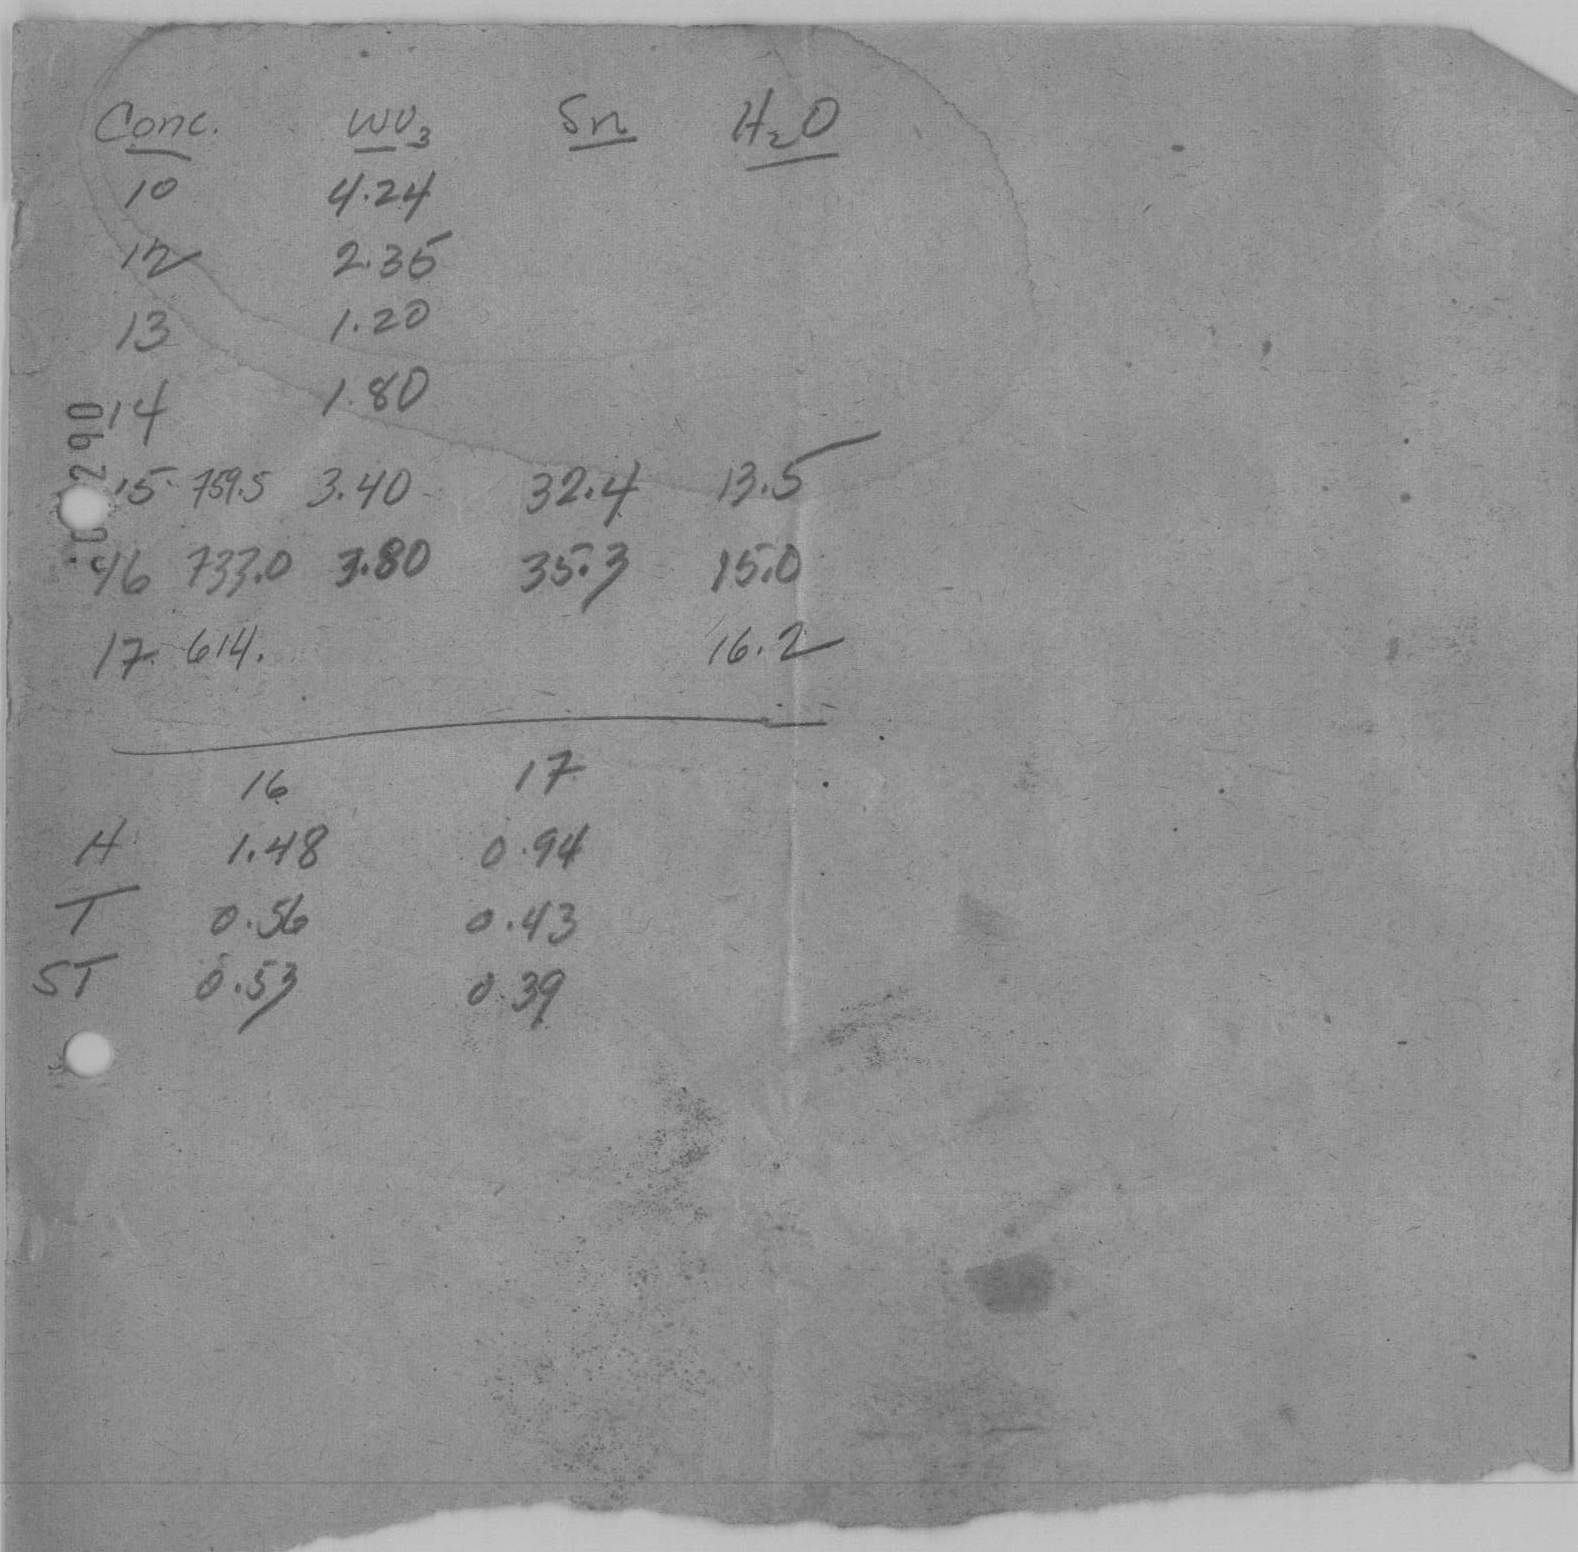 Conc. WO3 Sn H2O
10 4.24
12 2.35
13 1.20
14 1.80
15 759.5 3.40 32.4 13.5
16 733.0 3.80 35.3 15.0
17 614. 16.2
16 17
H 1.48 0.94
T 0.56 0.43
ST 0.53 0.39